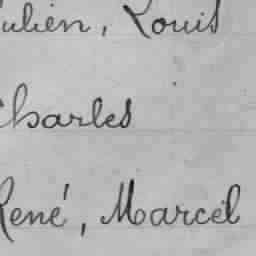 Julien, Louis
Charles
René, Marcel